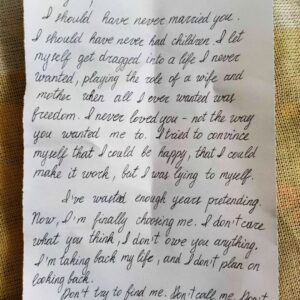 I should have never married you.
I should have never had children. I let
myself get dragged into a life I never
wanted, playing the role of a wife and
mother when all I ever wanted was
freedom. I never loved you - not the way
you wanted me to. I tried to convince
myself that I could be happy, that I could
make it work, but I was lying to myself.
I've wasted enough years pretending.
Now, I'm finally choosing me. I don't care
what you think, I don't owe you anything.
I'm taking back my life, and I don't plan on
looking back.
Don't try to find me. Don't call me. Don't